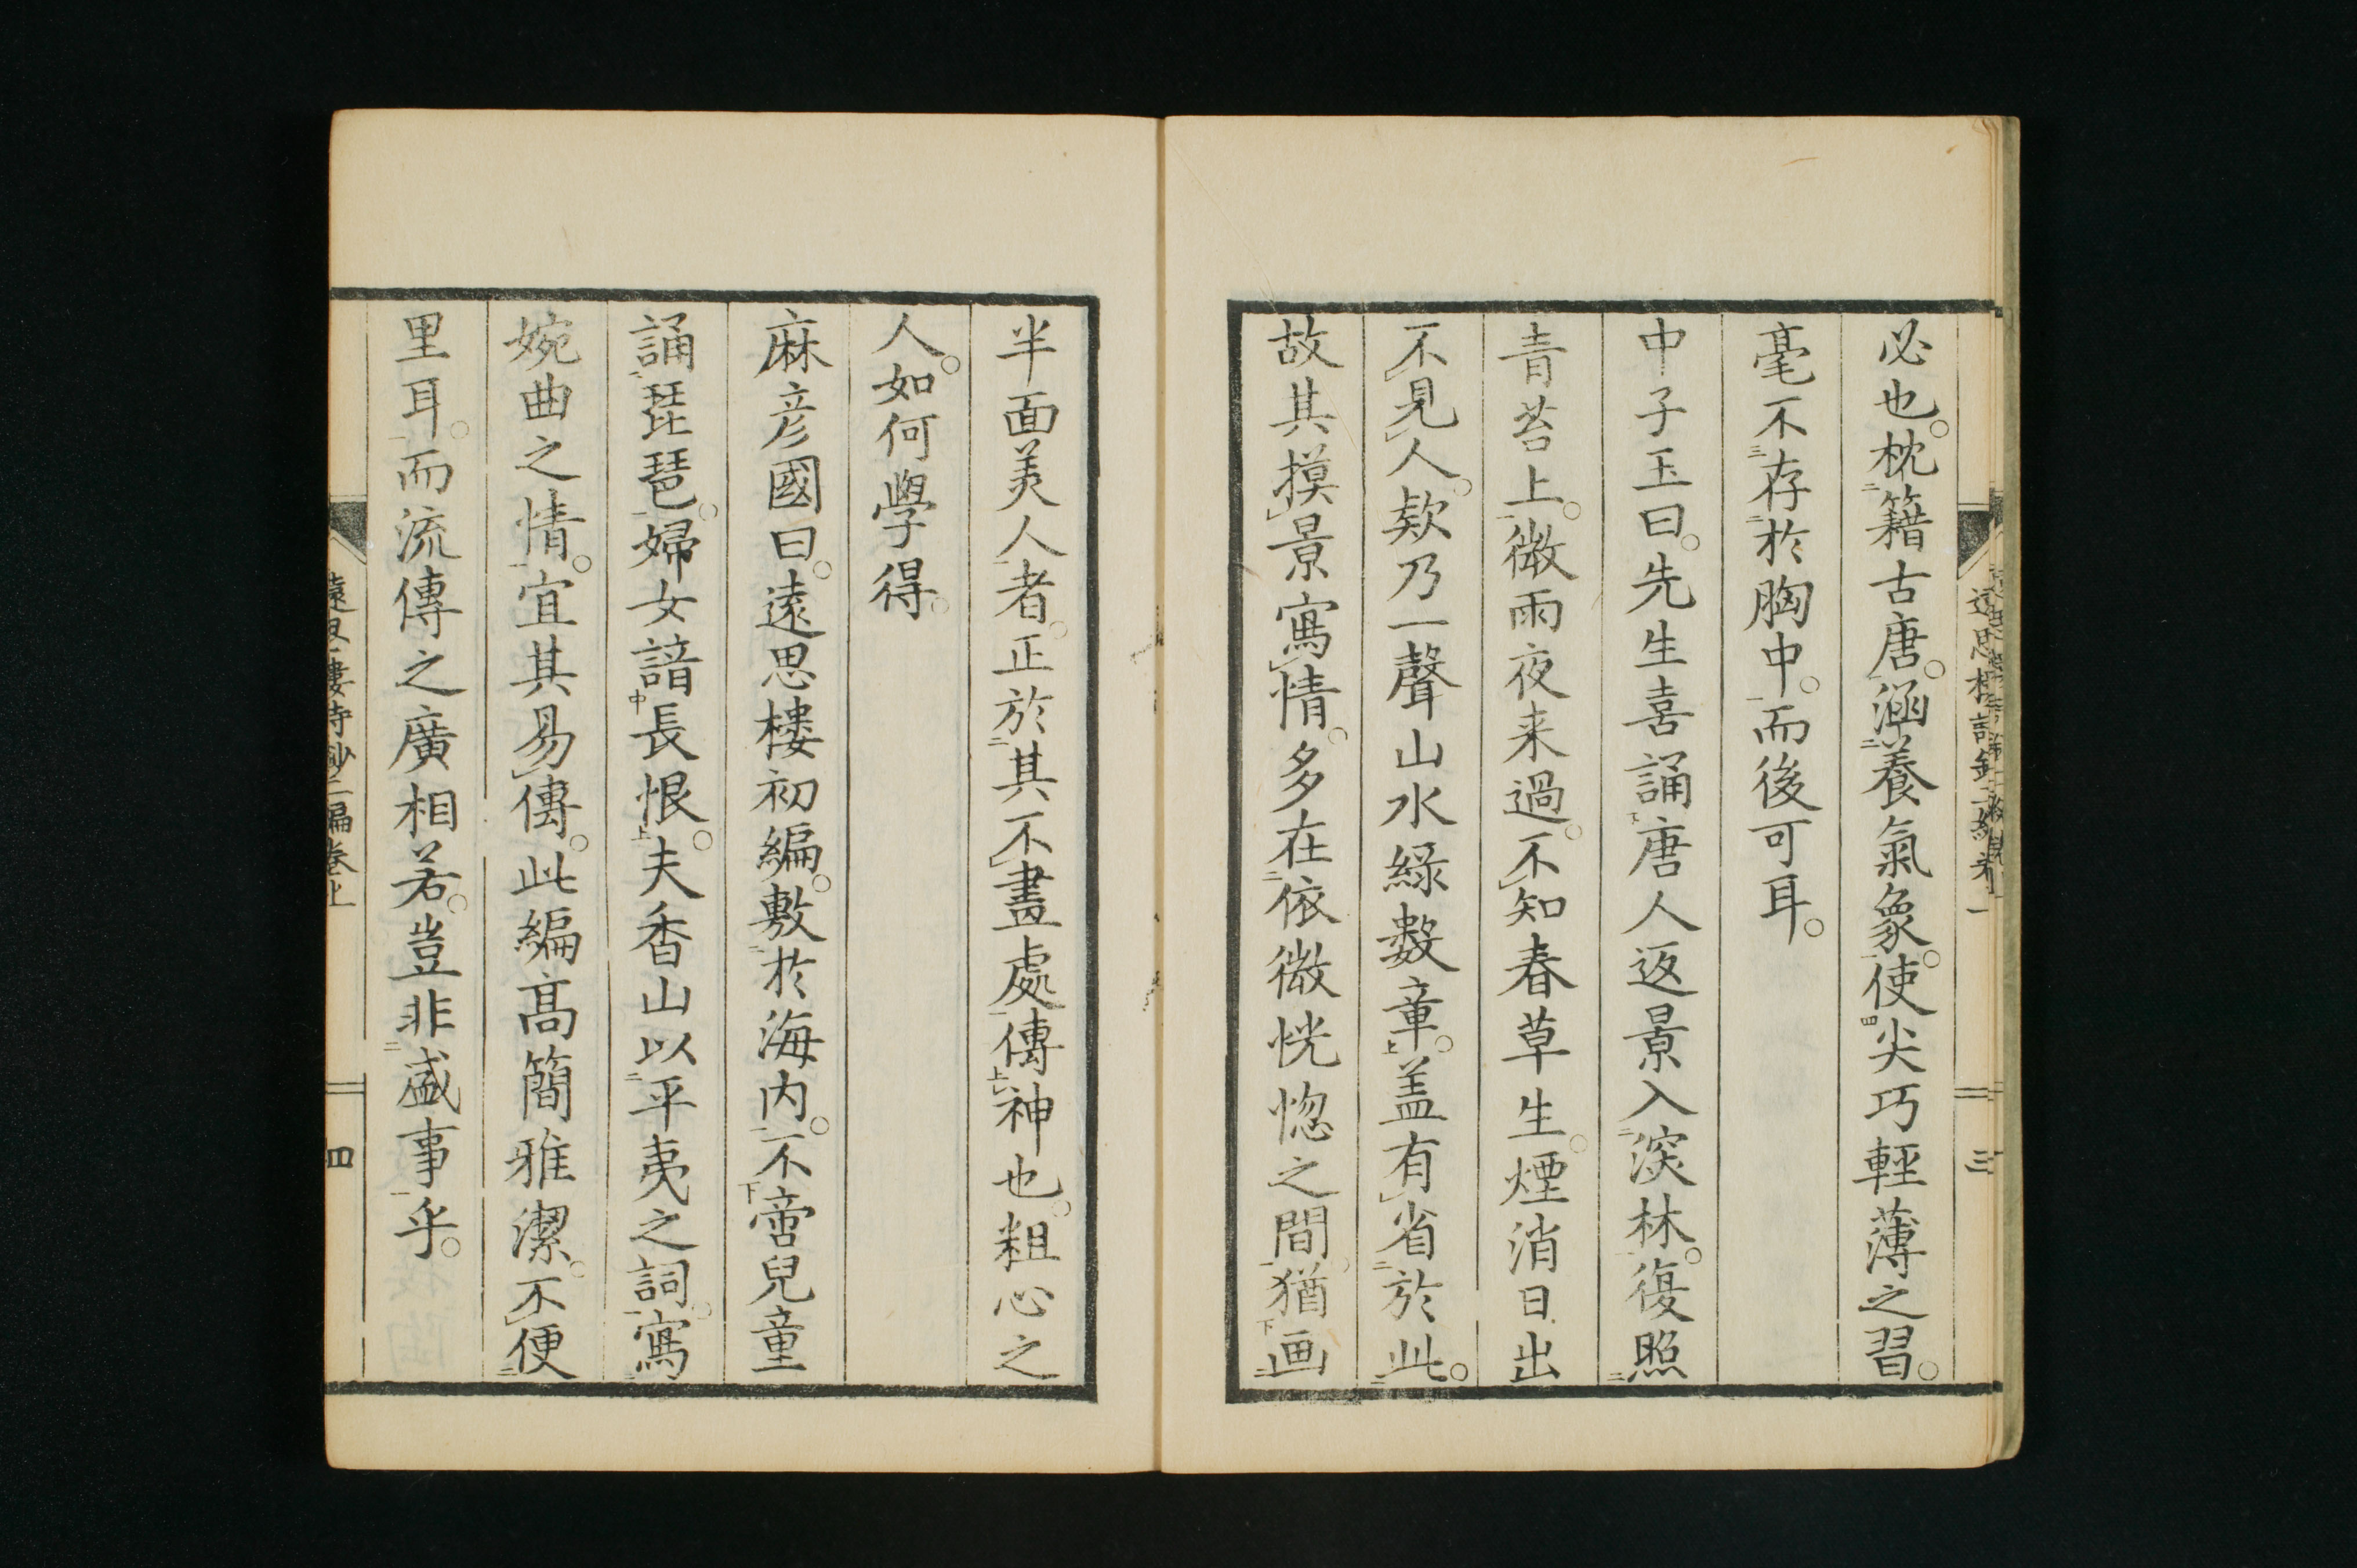 必也。枕籍古唐。涵養氣象。使尖巧輕薄之習。
毫不存於胸中。而後可耳。
中子玉曰。先生喜誦唐人返景入深林。復照
青苔上。微雨夜来過。不知春草生。煙消日出
不見人。欸乃一聲山水緑數章。盖有省於此。
故其摸景寫情。多在依微恍惚之間。猶画
三
半面美人者。正於其不盡處傳神也。粗心之
人。如何學得。
麻彦國曰。遠思樓初編。敷於海内。不啻兒童
誦琵琶。婦女諳長恨。夫香山以平夷之詞。寫
婉曲之情。宜其易傳。此編髙簡雅潔。不便
里耳。而流傳之廣相若。豈非盛事乎。
遠思樓詩鈔二編卷上
四